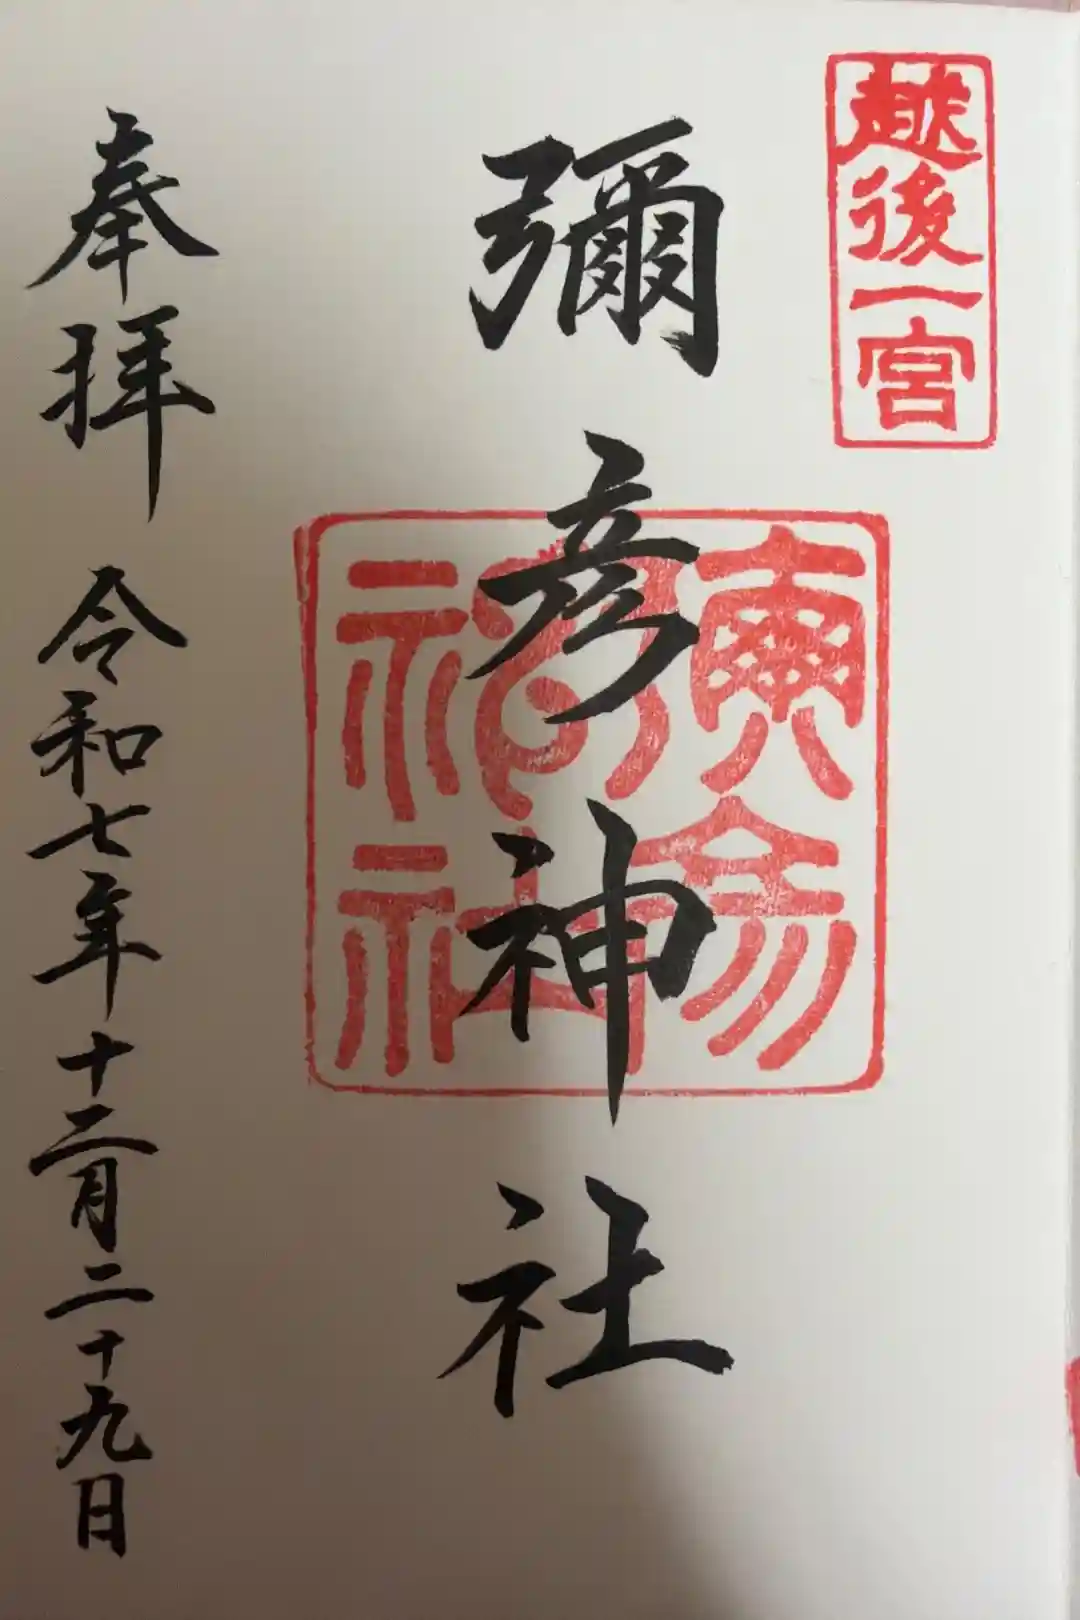 越後一宮
彌彦神社
彌彦神社
奉拝 令和七年十二月二十九日